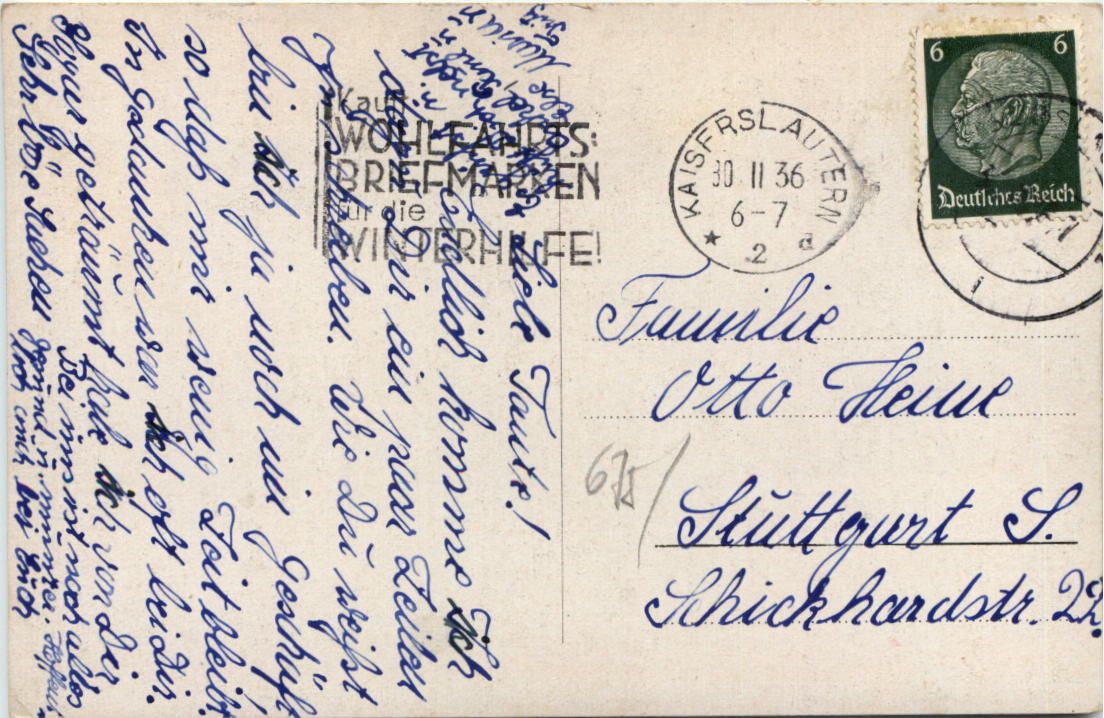 Kauft
WOHLFAHRTS-
BRIEFMARKEN
für die
WINTERHILFE!
KAISERSLAUTERN
30 11 36
6-7
★ 2 a
6 6
Deutsches Reich
Familie
Otto Heine
Stuttgart S.
Schickhardstr. 22.
675
Liebe Tante!
Endlich komme ich
dir ein paar Zeilen
zu schreiben. Wie Du weißt
bin ich ja noch im Geschäft
so daß mir wenig Zeit bleibt.
In Gedanken war ich oft bei Dir.
Sogar geträumt habe ich von Dir
böse Sachen
Bei uns ist noch alles
gesund u. munter. Hoffen
auch bei Euch